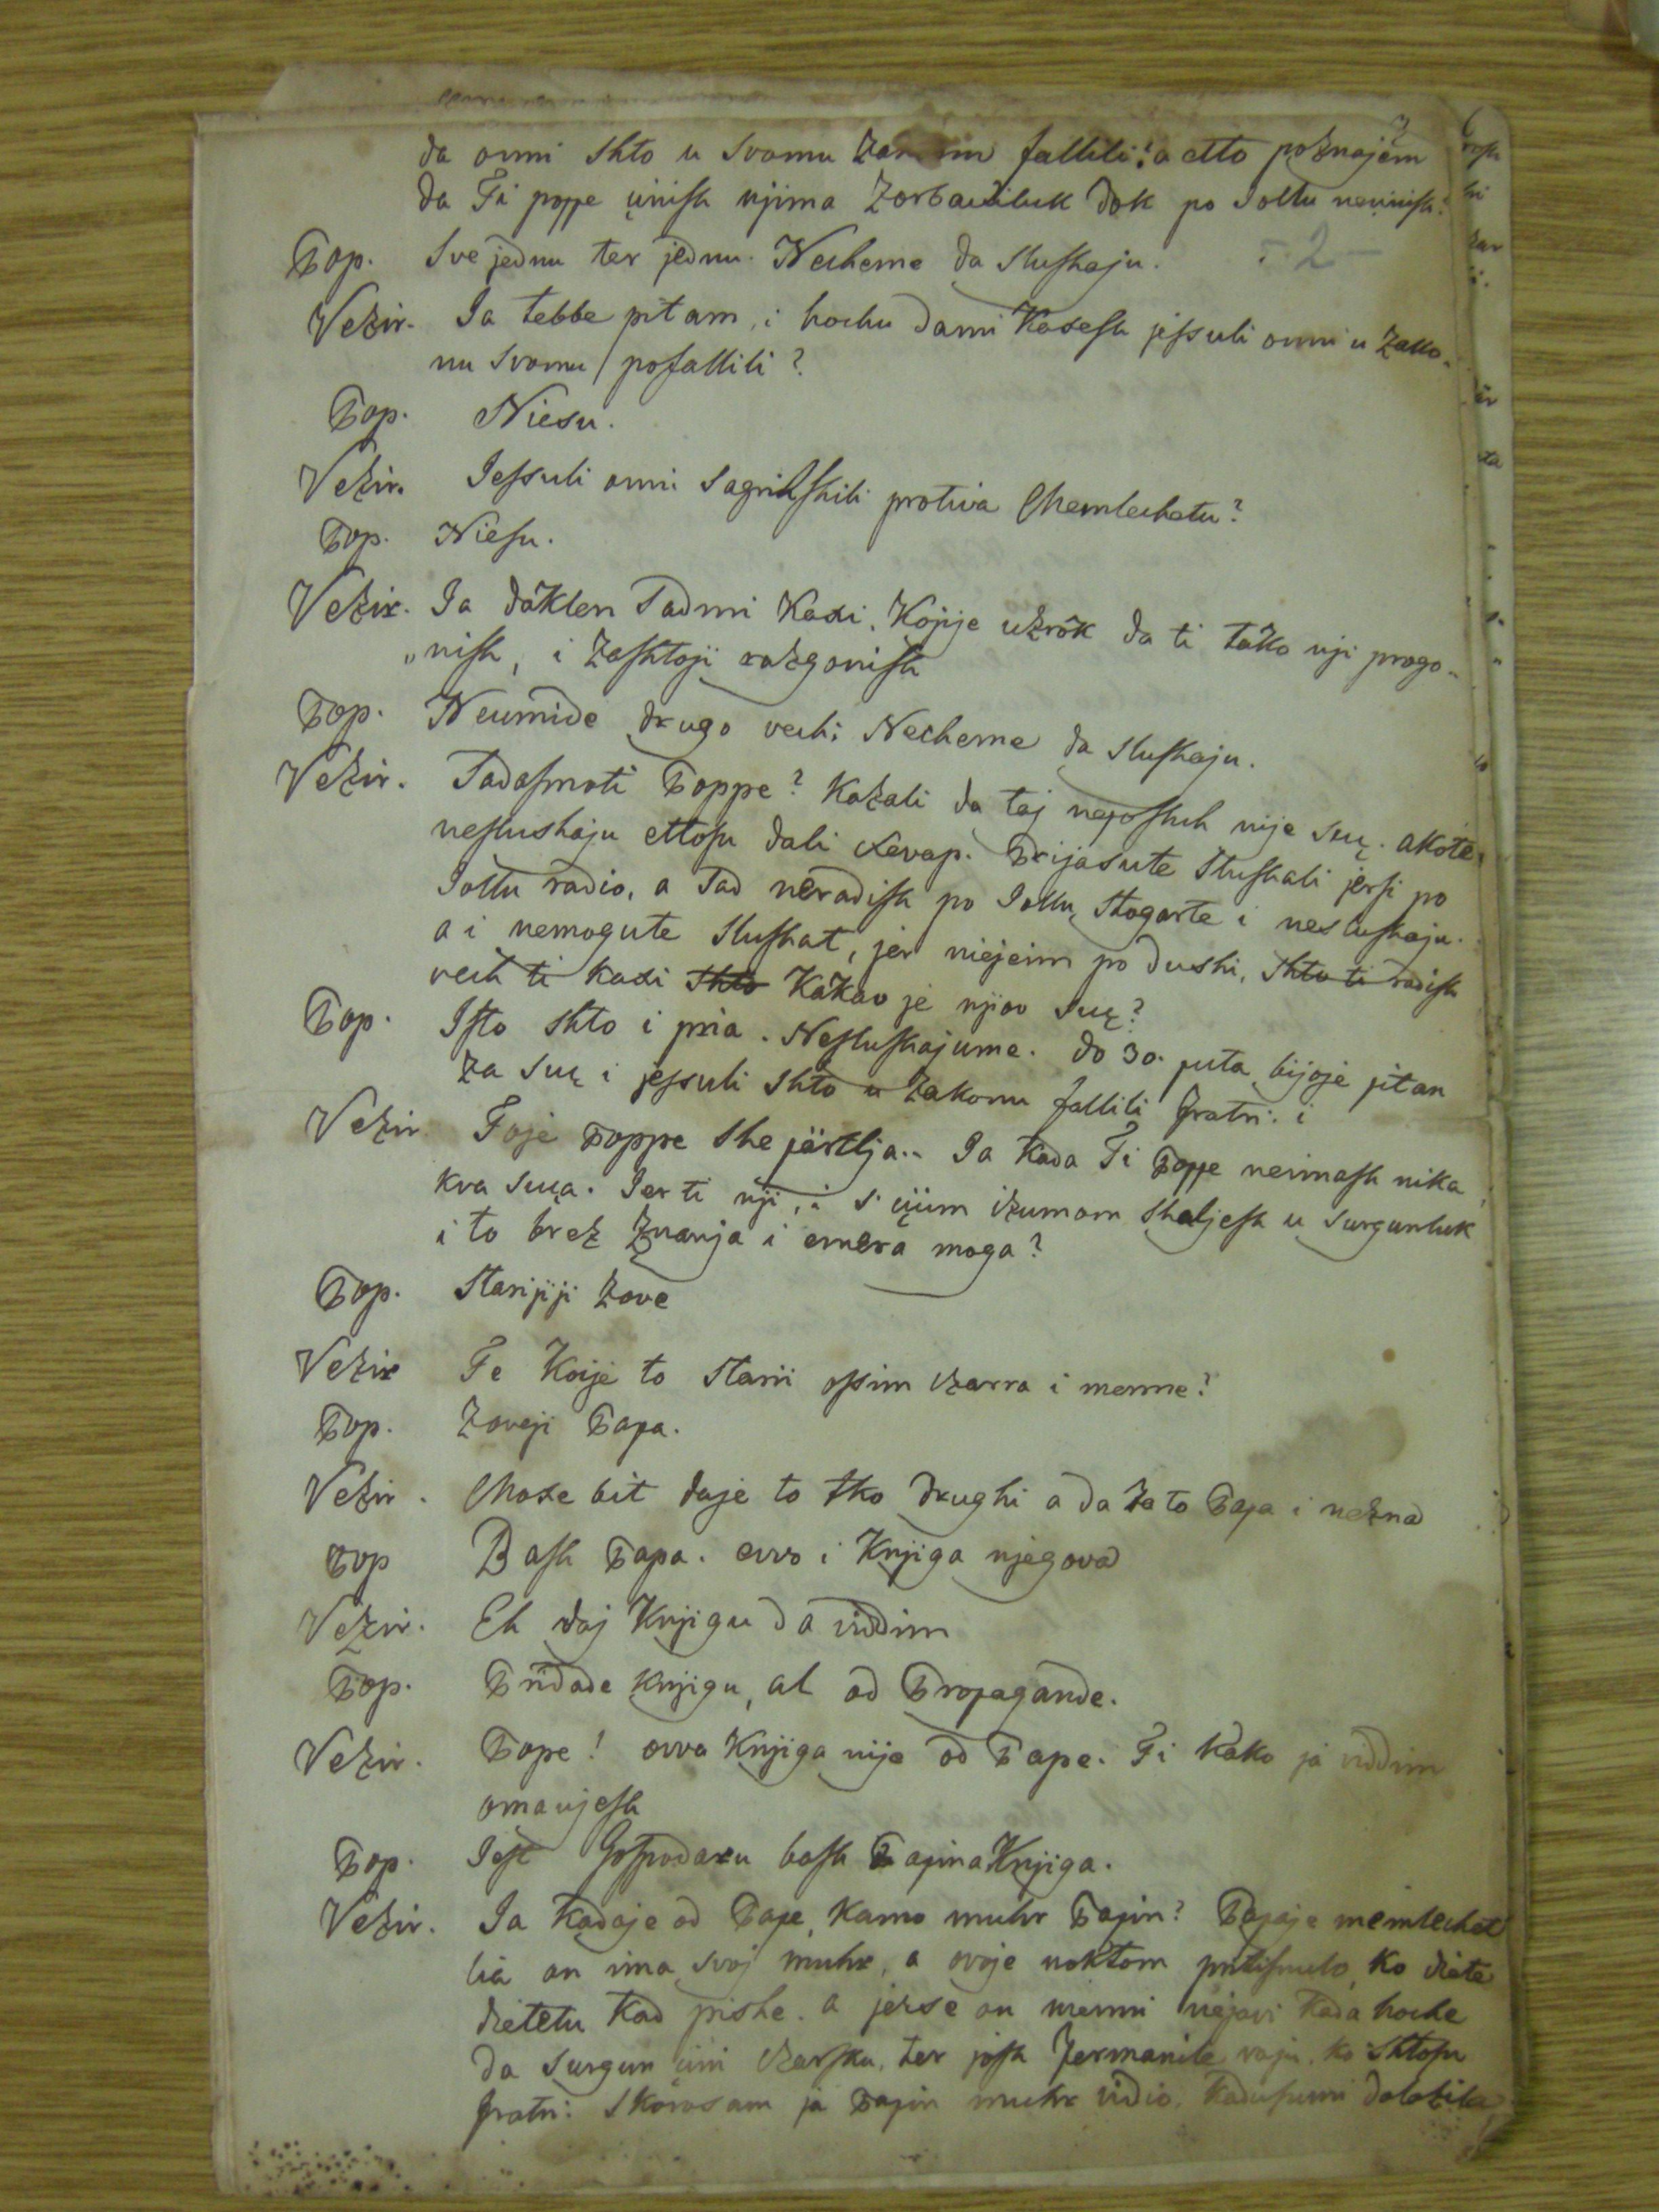 da onni shto u svomu fallili? a etto poznajem
da Ti poppe ųinish njima Zorbaυiluk dok po Joltu neųinish?
Pop. Sve jednu ter jednu. Necheme da slushaju. - 2 -
Vezir. Ja tebbe pitam, i hochu dami Kasesh jessuli onni u Zakko-
nu svomu pofallili?
Pop. Niesu.
Vezir. Jessuli onni sagrishili protiva Memlechetu?
Pop. Niesu.
Vezir. Ja dâklen Tadmi Kaxi, Kojije uzrôk da ti tako nji progo-
„nish, i Zashtoji razgonish
Pop. Neumide drugo vech: Necheme da slushaju.
Vezir. Tadasmoti Poppe? Kazali da taj neposluh nije suų. akote
neslushaju ettosu dali xevap. Prijasute slushali jersi po
Joltu radio, a Tad neradish po Joltu, stogarte i neslushaju.
a i nemogute slushat, jer niejeim po dushi, shto ti radish
vech ti kaxi shto Kakao je njiov suų?
Pop. Isto shto i pria. Neslushajume. do 30. puta bijoje pitan
za suų i jessuli shto u Zakonu fallili fratri: i
Vezir Toje Poppe shepärtlja.. Ja Kada Ti Poppe neimash nika
kva suųa. Jer ti nji, i s' ųiim izumom shaljesh u surgunluk
i to brez Znanja i emera moga?
Pop. Starijiji Zove
Vezir Te Koije to Starii ossim czarra i menne?
Pop. Zoveji Papa.
Vezir. Moxe bit daje to tko drughi a da za to Papa i nezna
Pop Bash Papa. evvo i Knjiga njegova
Vezir. Eh daj Knjigu da viddim
Pop. Pridade Knjigu, al od Propagande.
Vezir. Pope! ovva Knjiga nije od Pape. Ti kako ja viddim
omaųjesh
Pop. Jest Gospodaru bash Papina Knjiga.
Vezir. Ja Kadaje od Pape, Kamo muhr Papin? Papaje memlechet
lia on ima svoj muhr, a ovoje noktom pritisnuto, ko diete
dietetu kad pishe. a jerse on menni nejavi kada hoche
da surgun ųini czarsku, ter josh Jermanile raju. ko shtosu
fratri: Skorosam ja Papin muhr vidio, kadusumi dolazila